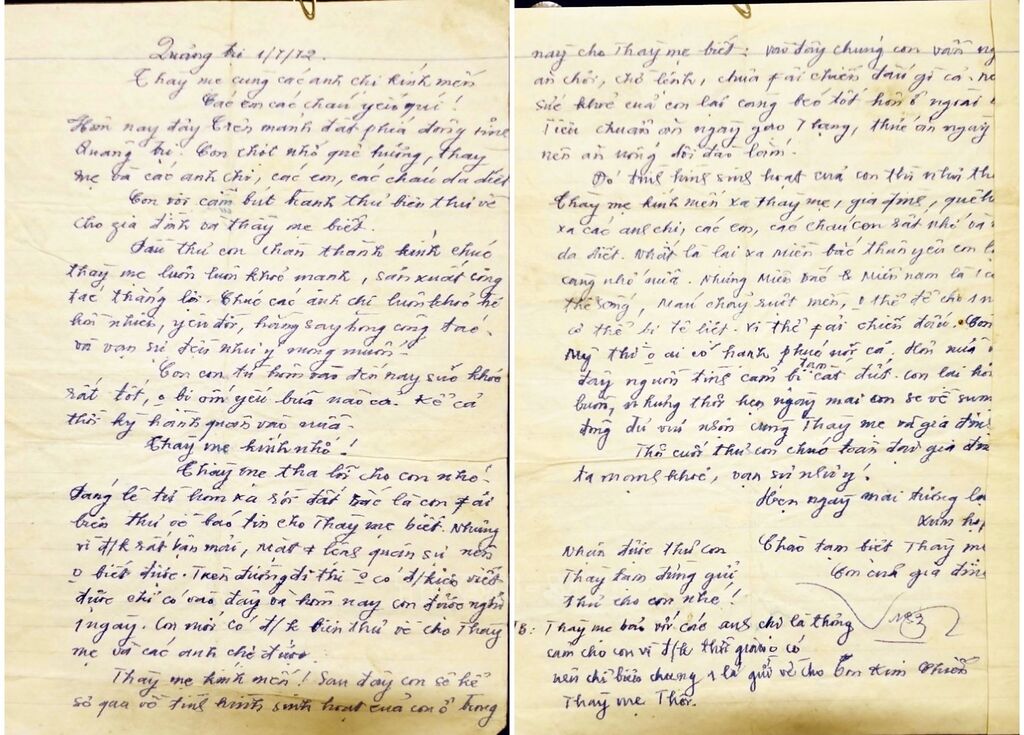 Quảng trị 1/7/72.
Thày mẹ cùng các anh chị kính mến
Các em các cháu yêu quí!
Hôm nay đây trên mảnh đất phía đông tỉnh
Quảng trị. Con chợt nhớ quê hương, thày
mẹ và các anh chị, các em, các cháu da diết
Con vội cầm bút hành thư biên thư về
cho gia đình và thày mẹ biết.
Đầu thư con chân thành kính chúc
thày mẹ luôn luôn khoẻ mạnh, sản xuất công
tác thắng lợi. Chúc các anh chị luôn khoẻ
hồn nhiên, yêu đời, hăng say trong công tác.
và vạn sự đều như ý mong muốn.
Còn con từ hôm vào đến nay sức khoẻ
rất tốt, o bị ốm yếu bữa nào cả. Kể cả
thời kỳ hành quân vào nữa.
Thày mẹ kính nhớ!
Thày mẹ tha lỗi cho con nhé.
Đáng lẽ từ hôm xa rời đất Bắc là con fải
biên thư về báo tin cho Thày mẹ biết. Nhưng
vì đ/k rất bận mải, mặt # quân sự nên
o biết được. Trên đường đi thì o có đ/kiện viết
được chỉ có vào đây và hôm nay con được nghỉ
1 ngày. Con mới có đ/k biên thư về cho Thày
mẹ và các anh chị được.
Thày mẹ kính mến! Sau đây con sẽ kể
sơ qua về tình hình sinh hoạt của con ở trong
này cho Thày mẹ biết: vào đây chúng con vẫn
ăn chơi, chờ lệnh, chưa fải chiến đấu gì cả.
sức khoẻ của con lại càng béo tốt hơn ở ngoài
Tiêu chuẩn ăn ngày gạo Thạng, thức ăn ngày
nên ăn uống dồi dào lắm.
Đó tình hình sinh hoạt của con thì như
Thày mẹ kính mến xa thày mẹ, gia đình, quê
xa các anh chị, các em, các cháu con rất nhớ và
da diết. Nhất là lại xa miền bắc thân yêu con
càng nhớ nữa. Nhưng Miền Bắc & Miền nam là 1
thể sống, máu chảy ruột mềm, o thể để cho
cơ thể bị tê liệt. Vì thế fải chiến đấu. Còn
Mỹ thì o ai có hạnh phúc nổi cả. Hơn nữa
đây nguồn tình cảm bị tạm cắt đứt. con lại
buồn, nhưng thôi hẹn ngày mai con sẽ về sum
đông đủ vui nhộn cùng Thày mẹ và gia đình
Thôi cuối thư con chúc toàn thể gia đình
ta mạnh khoẻ, vạn sự như ý!
Hẹn ngày mai tương lai
xum họp
Chào tạm biệt Thày mẹ
Cùng gia đình
Nhận được thư con
Thày tạm đừng gửi
thư cho con nhé!
TB: Thày mẹ bảo với các anh chị là thông
cảm cho con vì đ/k thời gian o có
nên chỉ biên chung 1 lá gửi về cho
Thày mẹ Thôi.